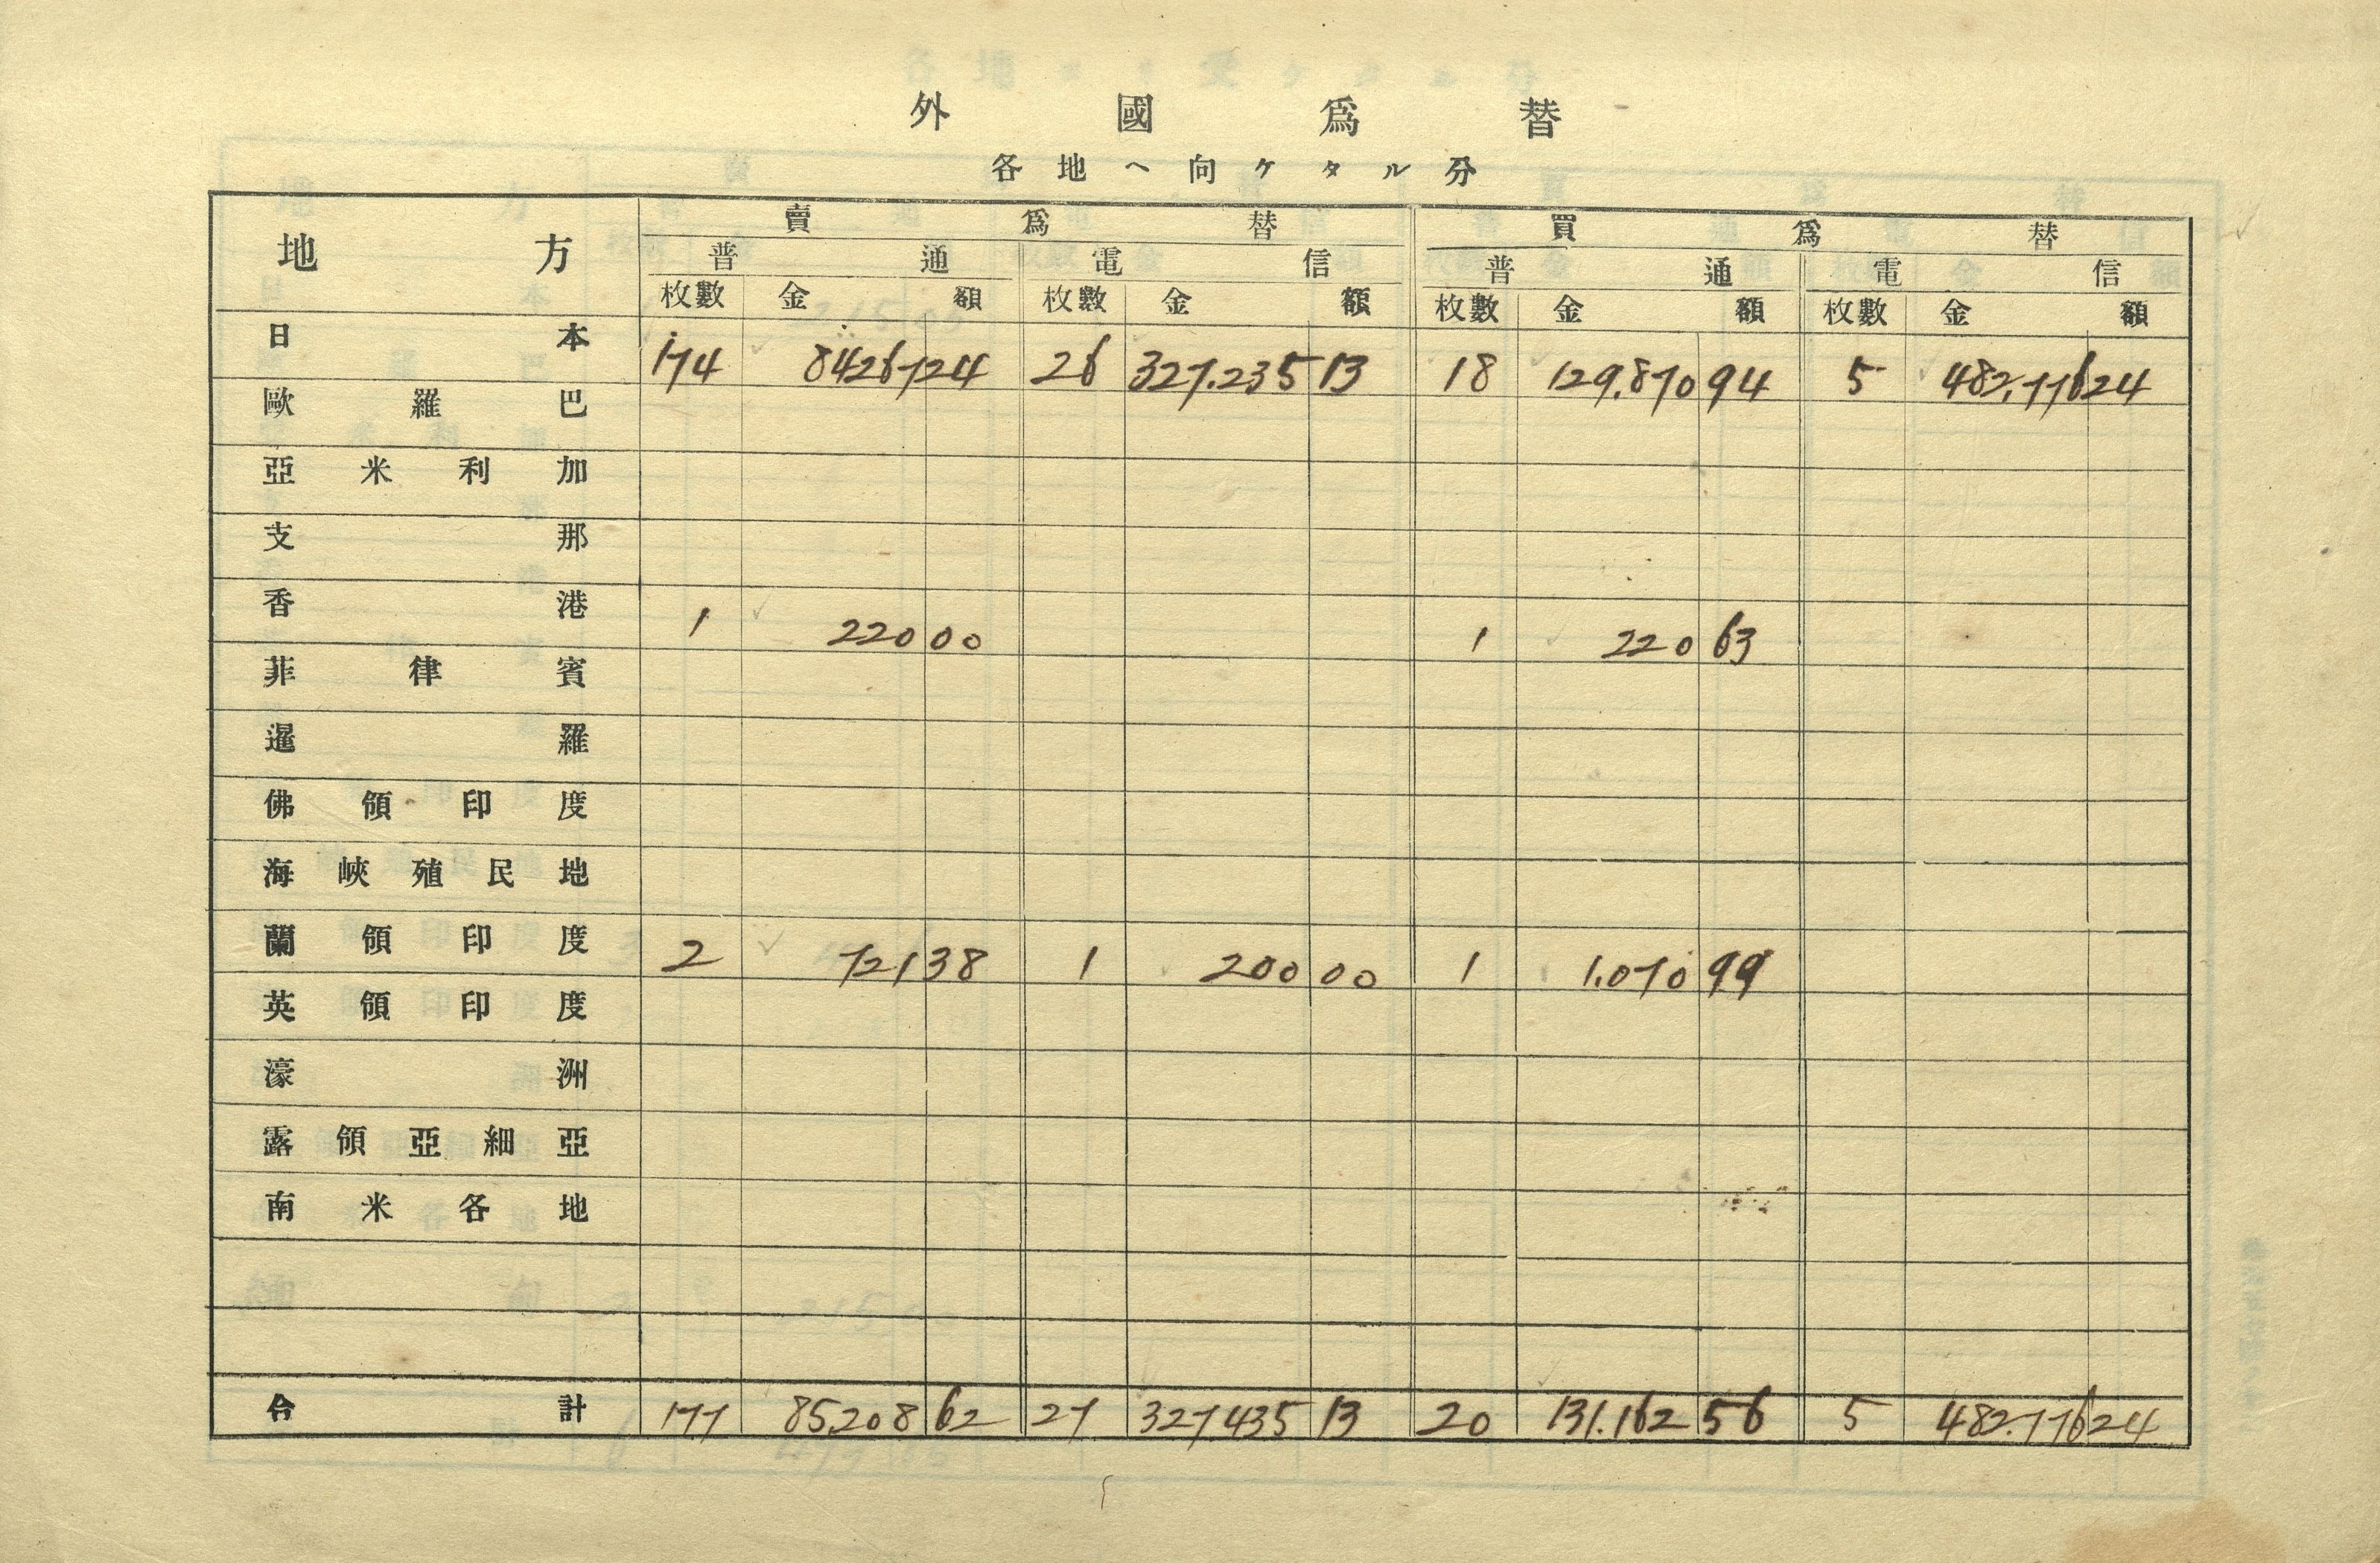 外國爲替
各地ヘ向ケタル分
地方 賣爲替 買爲替
普通 電信 普通 電信
枚數 金額 枚數 金額 枚數 金額 枚數 金額
日本 174 84267 24 26 327.235 13 18 129.870 94 5 482.776 24
歐羅巴
亞米利加
支那
香港 1 220 00 1 220 63
菲律賓
暹羅
佛領印度
海峽殖民地
蘭領印度 2 721 38 1 200 00 1 1.070 99
英領印度
濠洲
露領亞細亞
南米各地
合計 177 85.208 62 27 327.435 13 20 131.162 56 5 482.776 24